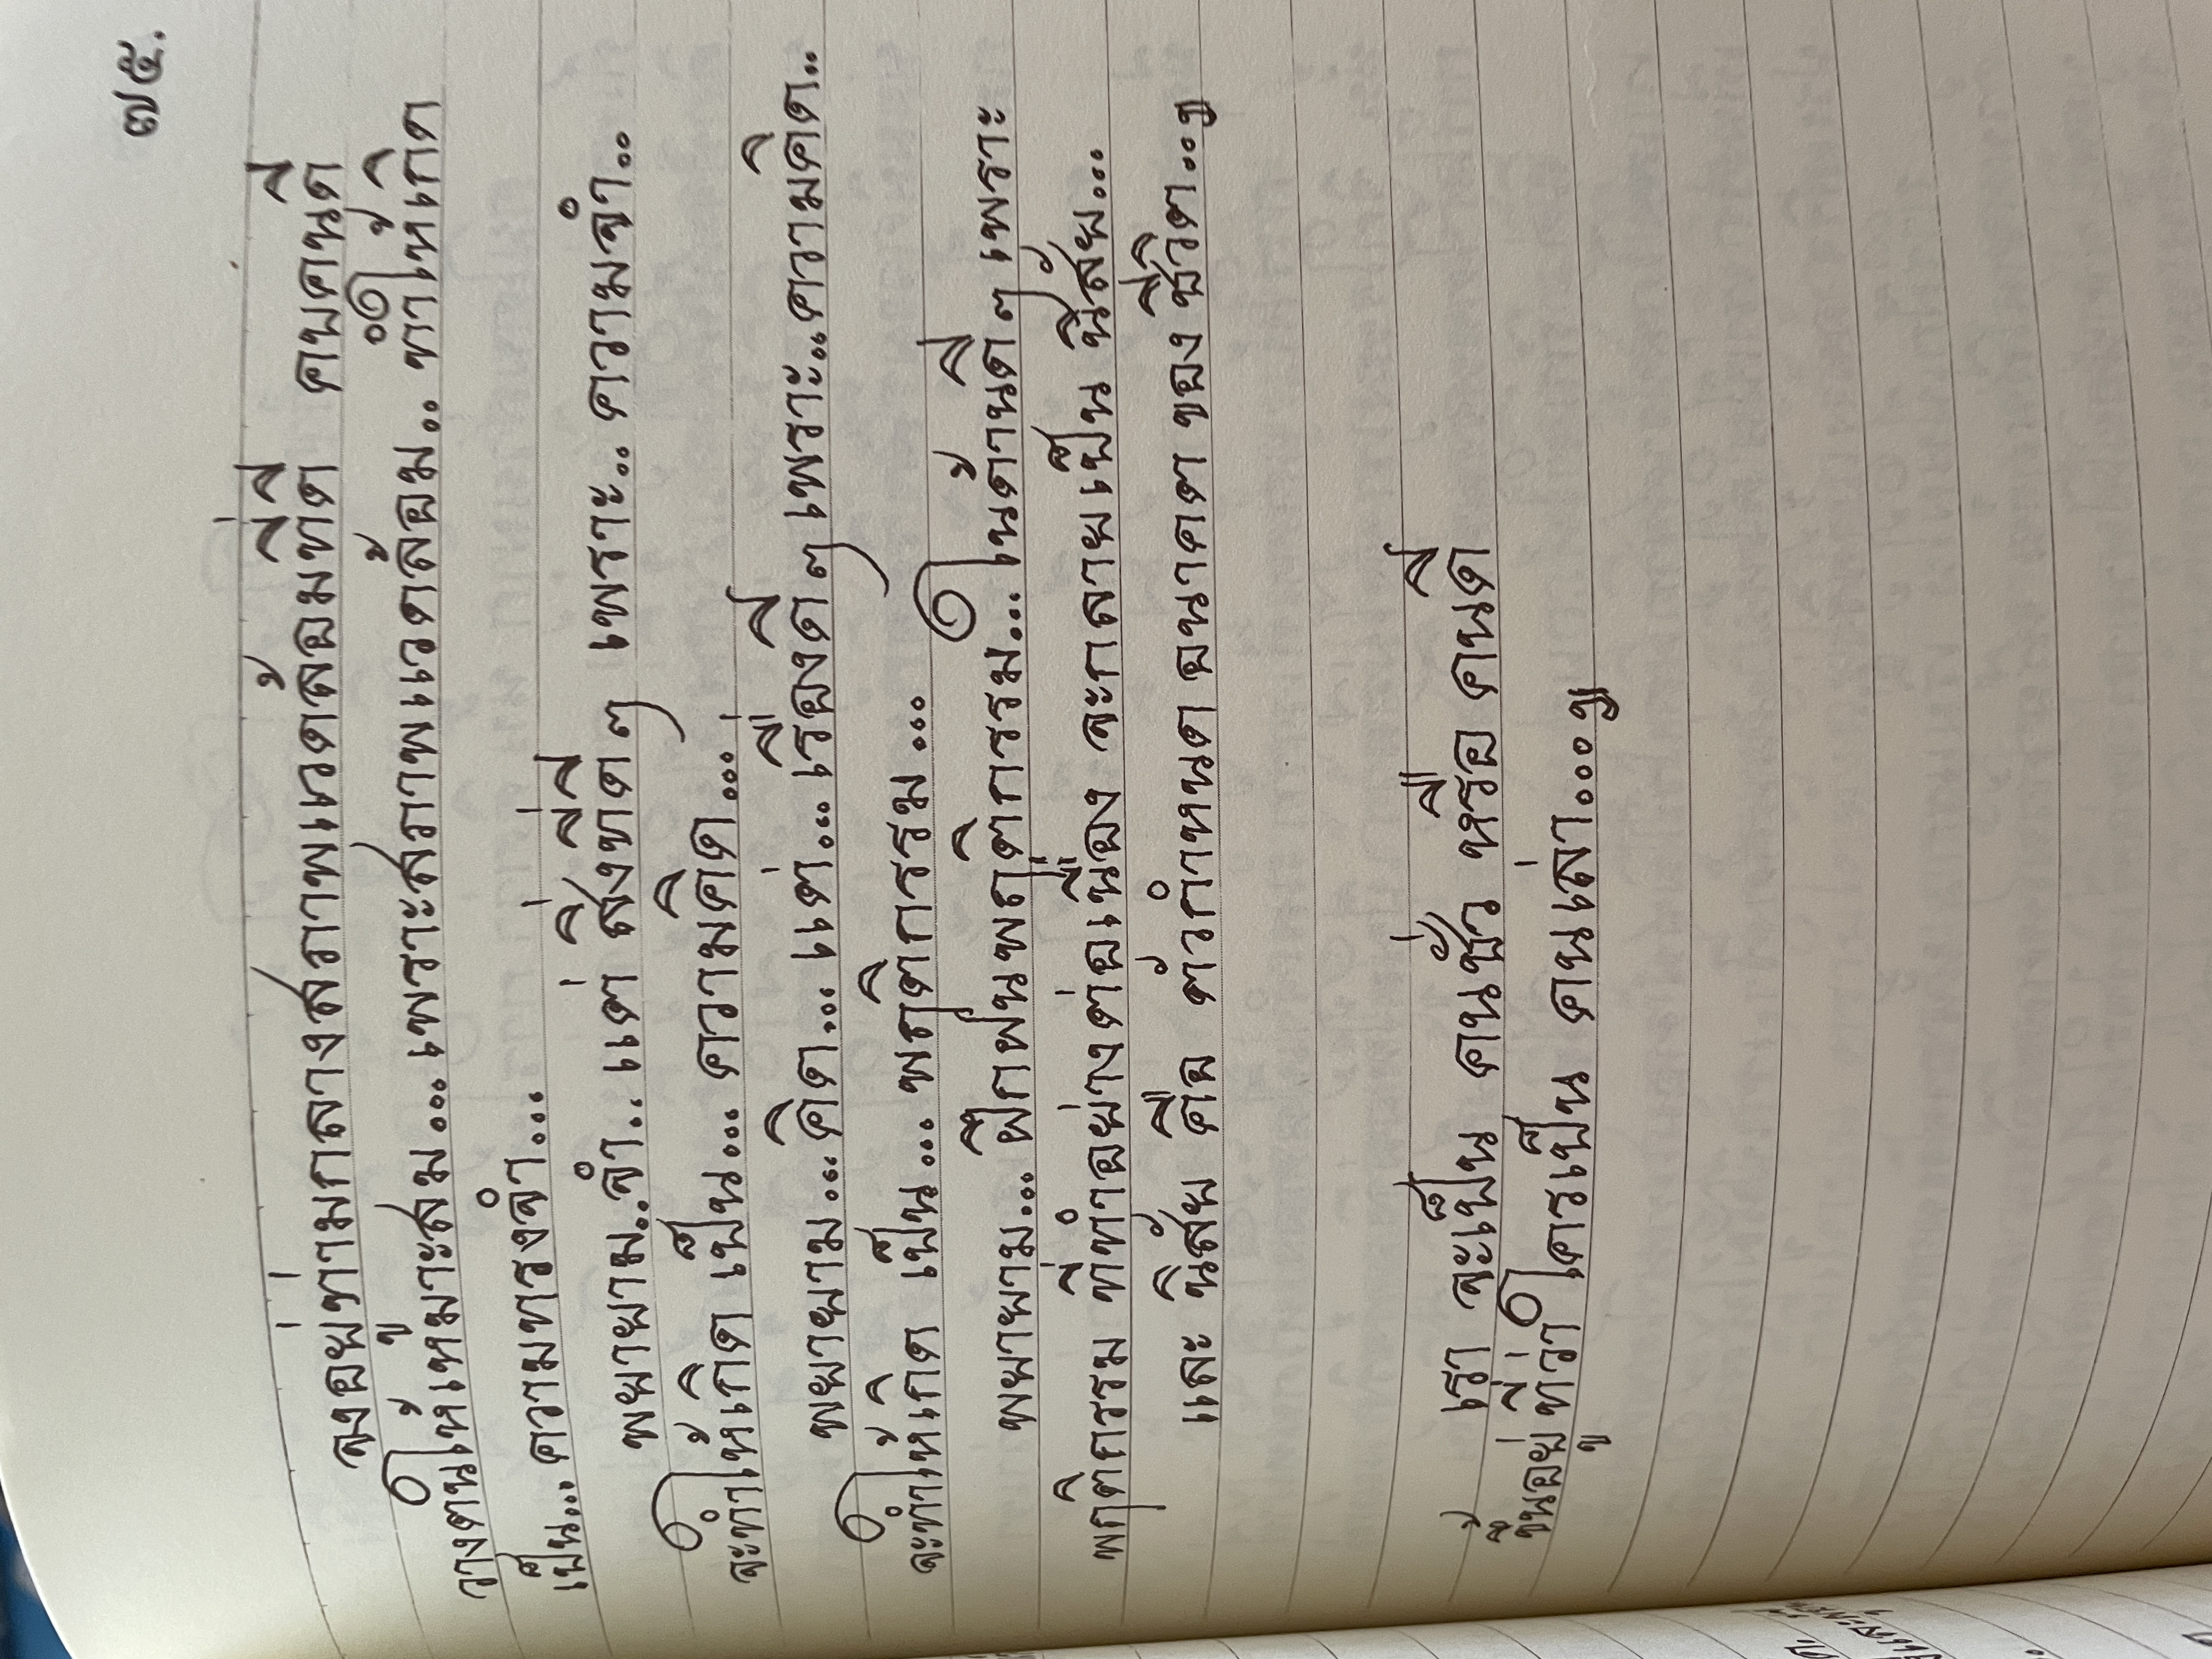 ๗๕.
จงอยู่ท่ามกลางสภาพแวดล้อมที่ดี คบคนดี
วางตนให้เหมาะสม... เพราะสภาพแวดล้อม.. ทำให้เกิด
เป็น... ความทรงจำ...
พยายาม..จำ.. แต่ สิ่งที่ดี ๆ เพราะ.. ความจำ..
จะทำให้เกิด เป็น... ความคิด...
พยายาม... คิด... แต่... เรื่องดี ๆ เพราะ..ความคิด..
จะทำให้เกิด เป็น... พฤติกรรม...
พยายาม... ฝึกฝนพฤติกรรม... ในด้านดี ๆ เพราะ
พฤติกรรม ที่ทำอย่างต่อเนื่อง จะกลายเป็น นิสัย...
และ นิสัย คือ ตัวกำหนด อนาคต ของ ชีวิต...ๆ
เรา จะเป็น คนชั่ว หรือ คนดี
ขึ้นอยู่ที่ว่า ใครเป็น คนเล่า...ๆ